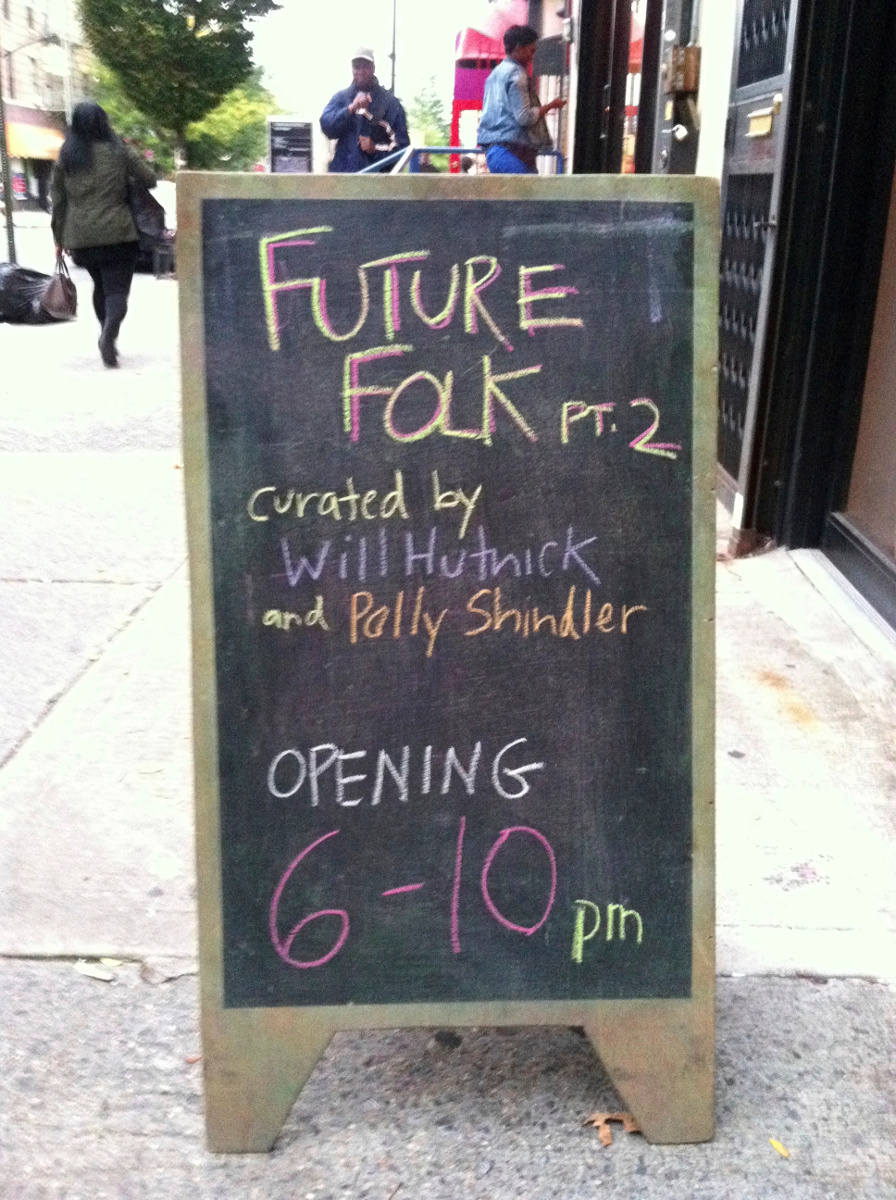 FUTURE
FOLK PT. 2
curated by
Will Hutnick
and Polly Shindler
OPENING
6-10 pm